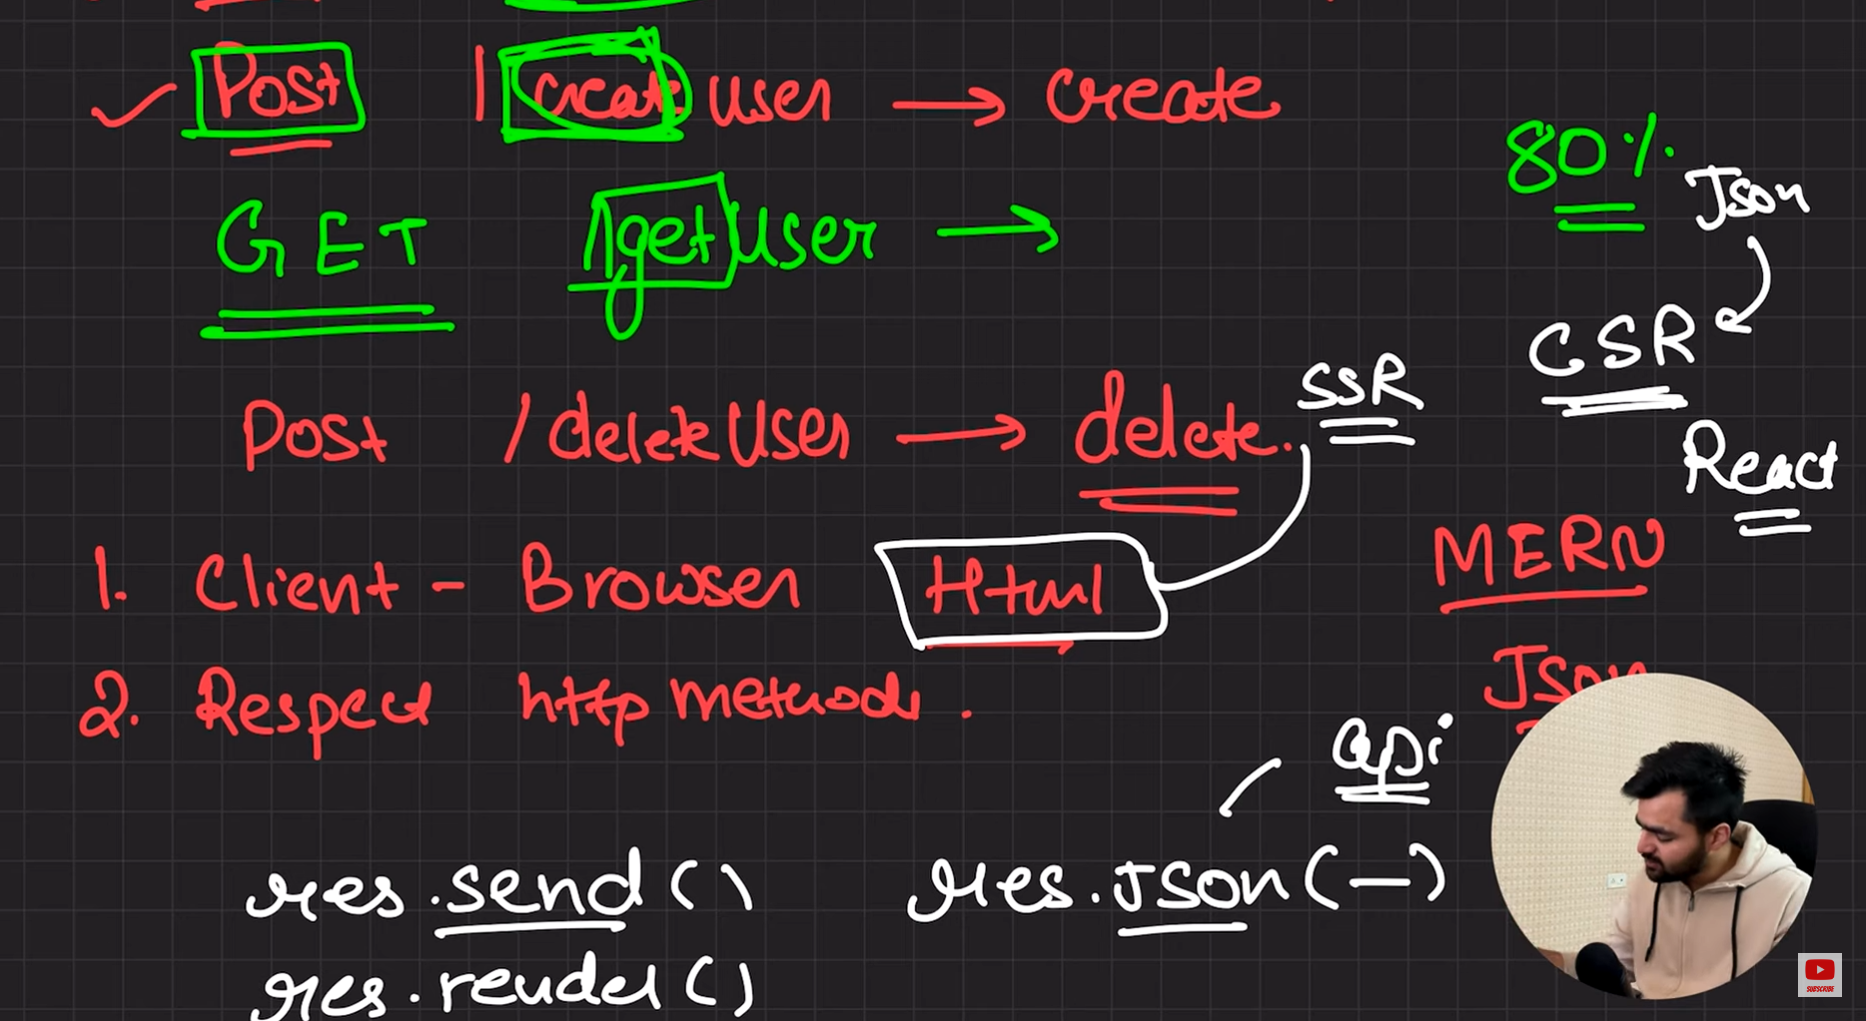 ✓ Post /create user → create
80%
Json
GET /getUser →
CSR
SSR
Post /deleteUser → delete.
React
1. Client - Browser Html
MERN
Json
2. Respect http methods.
api
res.send() res.Json(-)
res.render()
SUBSCRIBE